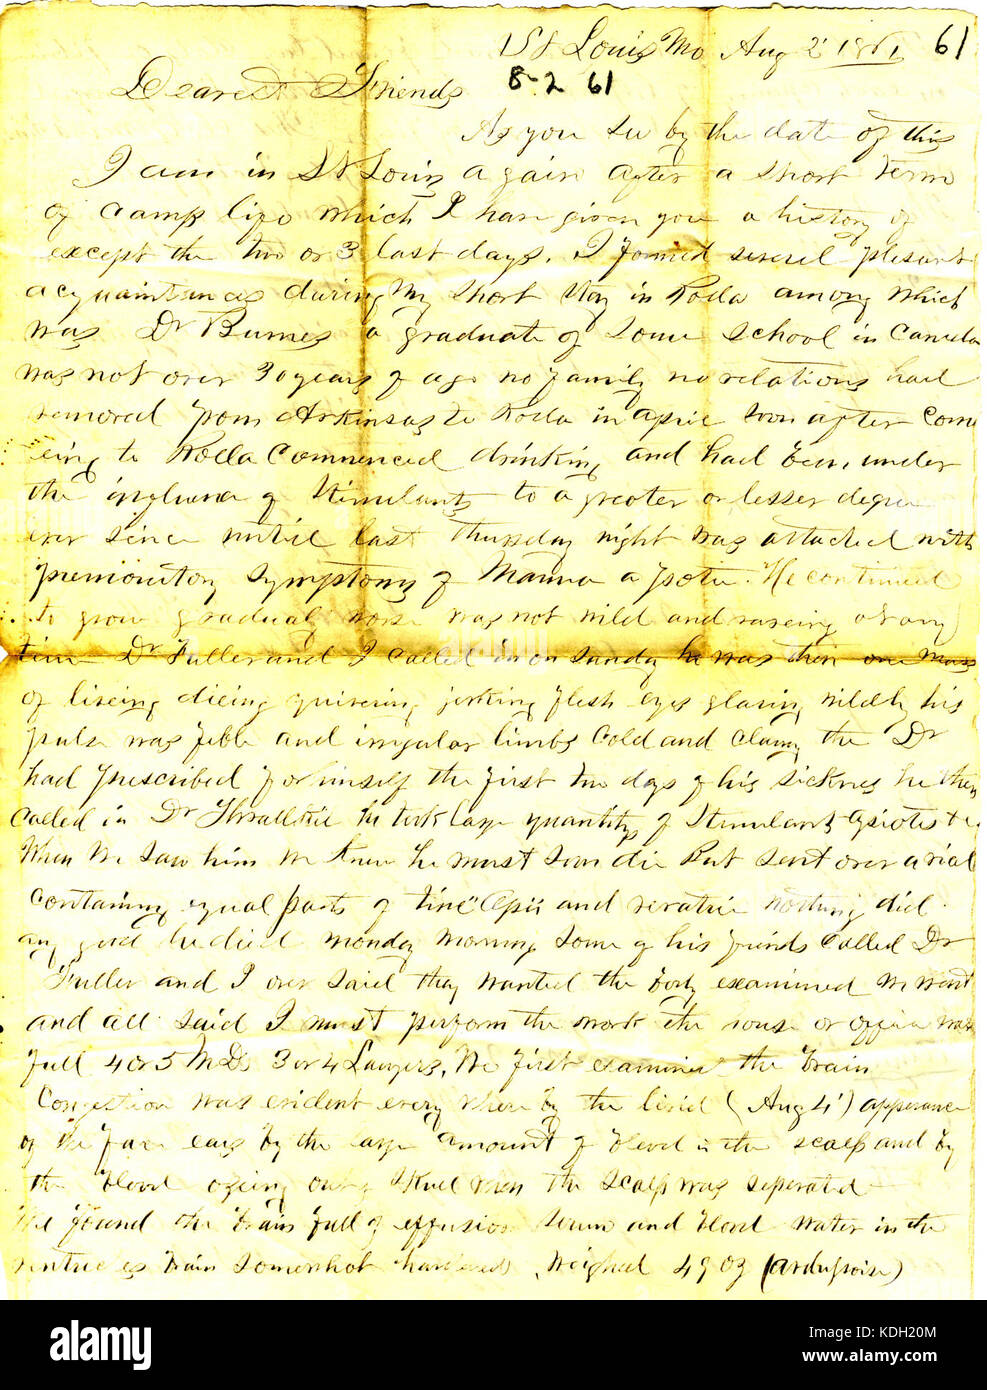 St Louis Mo Aug 2' 1861 61
Dearest Friends 8-2 61
As you see by the date of this
I am in St Louis again after a short term
of camp life which I have given you a history of
except the two or 3 last days. I formed severel plesant
acquaintances during my short stay in Rolla among which
was Dr Burnes a graduate of some school in Canada
was not over 30 years of age no family no relations had
removed from Arkinsas to Rolla in april soon after come
ing to Rolla Commenced drinking and had been under
the influence of Stimulants to a greater or lesser degree
ever since until last thursday night was attacked with
premonitory symptoms of Manna a potu. He continued
to grow gradual worse was not wild and raveing at any
time Dr Fuller and I called in on Sunday he was then one mass
of liveing dieing quivering jerking flesh eyes glaring wildly his
pulse was feble and irregular limbs cold and clamy the Dr
had prescribed for himself the first two days of his sickness he then
called in Dr he took large quantitys of Stimulants opiotes &c
When we saw him we knew he must soon die But sent over a vial
containing equal parts of tinc" Opii and veratrie nothing did
any good he died monday morning some of his friends called Dr
Fuller and I over said they wanted the body examined we went
and all said I must perform the work the house or office was
full 4 or 5 M Ds 3 or 4 Lawyers. We first examined the brain
Congestion was evident every where by the livid (Aug 4') apperance
of the face ears by the large amount of blood in the scalp and by
the blood ozeing out of Skull when the scalp was seperated
We found the brain full of effusion serum and blood water in the
ventricles brain somewhat hardened weighed 49 oz (avdupoise)
alamy
Image ID: KD H20M
www.alamy.com